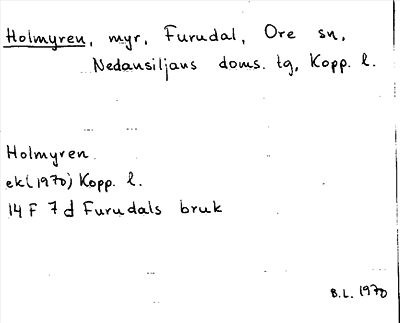 Holmyren, myr, Furudal, Ore sn,
Nedansiljans doms. tg, Kopp. l.
Holmyren
ek(1970) Kopp. l.
14 F 7 d Furudals bruk
B.L. 1970